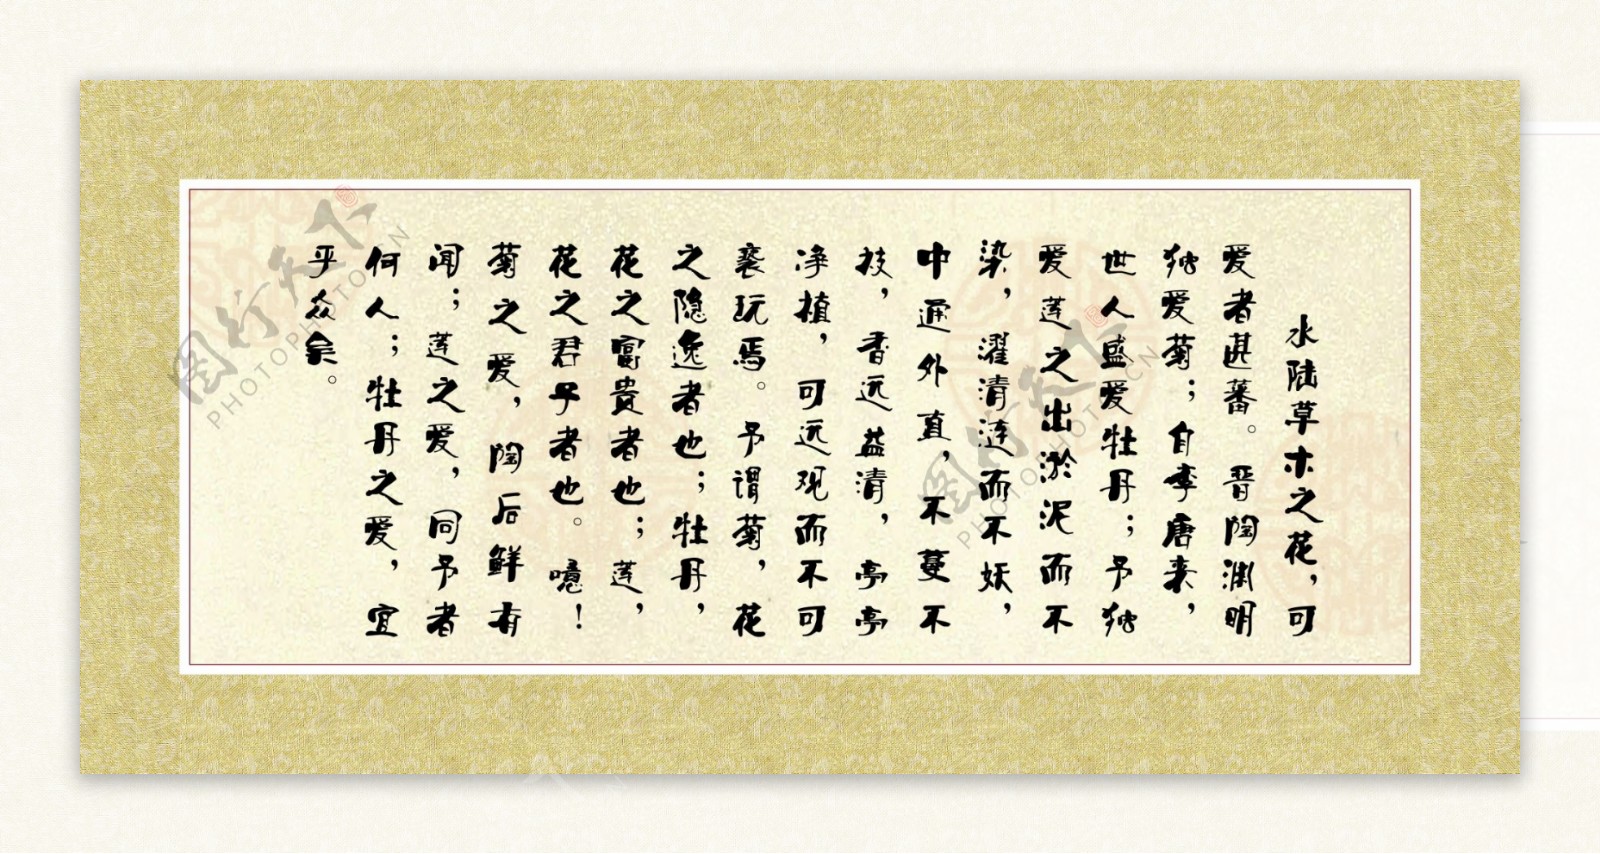 水陆草木之花，可
爱者甚蕃。晋陶渊明
独爱菊；自李唐来，
世人盛爱牡丹；予独
爱莲之出淤泥而不
染，濯清涟而不妖，
中通外直，不蔓不
枝，香远益清，亭亭
净植，可远观而不可
亵玩焉。予谓菊，花
之隐逸者也；牡丹，
花之富贵者也；莲，
花之君子者也。噫！
菊之爱，陶后鲜有
闻；莲之爱，同予者
何人；牡丹之爱，宜
乎众矣。
图行天下
PHOTOPHOTO.CN
图行天下
PHOTOPHOTO.CN